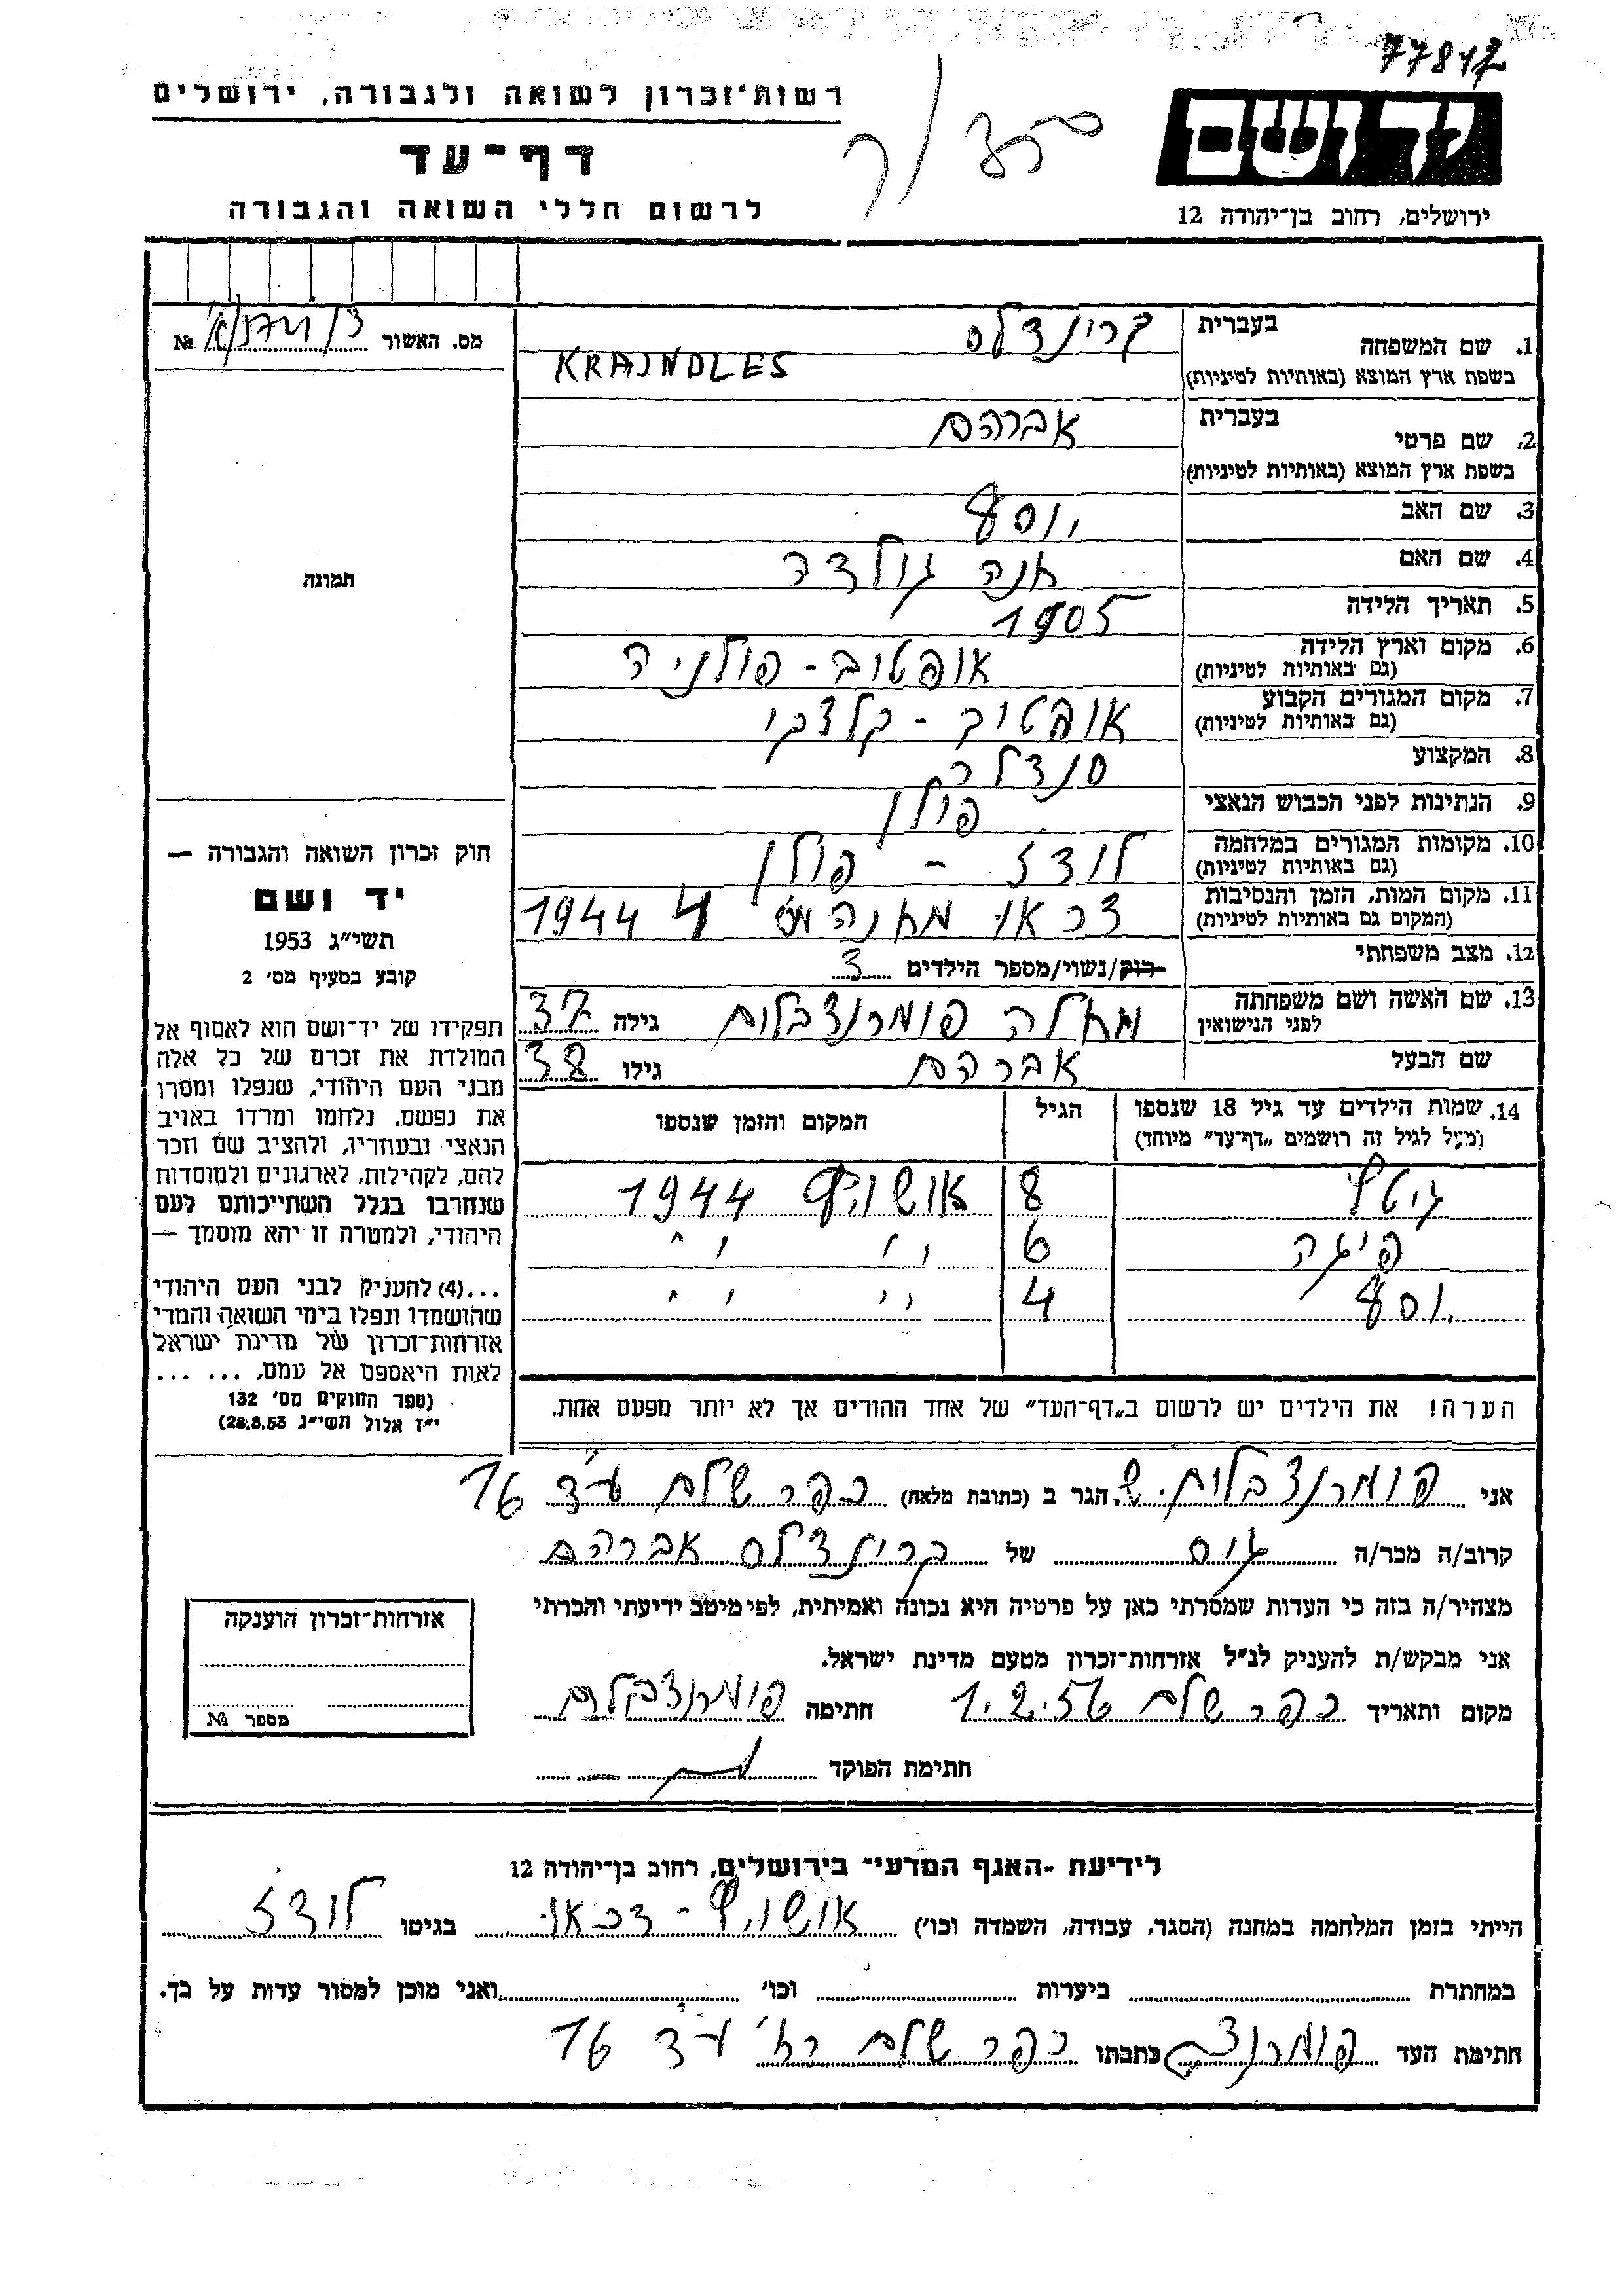 77817
יד ושם
ירושלים, רחוב בן־יהודה 12
רשות־זכרון לשואה ולגבורה, ירושלים
דף־עד
לרשום חללי השואה והגבורה
מס. האשור № 
1. שם המשפחה בעברית קרינדלס
בשפת ארץ המוצא (באותיות לטיניות) KRAJNDLES
2. שם פרטי בעברית אברהם
בשפת ארץ המוצא (באותיות לטיניות)
3. שם האב יוסף
4. שם האם חנה גולדה
5. תאריך הלידה 1905
6. מקום וארץ הלידה (גם באותיות לטיניות) אופטוב - פולניה
7. מקום המגורים הקבוע (גם באותיות לטיניות) אופטוב - קלצקי
8. המקצוע סנדלר
9. הנתינות לפני הכבוש הנאצי פולן
10. מקומות המגורים במלחמה (גם באותיות לטיניות) לודז - פולן
11. מקום המות, הזמן והנסיבות (המקום גם באותיות לטיניות) דכאו מחנה מס 4 1944
12. מצב משפחתי רוק/נשוי/מספר הילדים 3
13. שם האשה ושם משפחתה לפני הנישואין מאלה פומרנצבלום גילה 37
שם הבעל אברהם גילו 38
14. שמות הילדים עד גיל 18 שנספו (מעל לגיל זה רושמים „דף־עד” מיוחד) הגיל המקום והזמן שנספו
גיטל 8 אושויץ 1944
פיגה 6 " " "
יוסף 4 " " "
הערה! את הילדים יש לרשום ב„דף־העד” של אחד ההורים אך לא יותר מפעם אחת.
תמונה
חוק זכרון השואה והגבורה —
יד ושם
תשי״ג 1953
קובע בסעיף מס׳ 2
תפקידו של יד־ושם הוא לאסוף אל
המולדת את זכרם של כל אלה
מבני העם היהודי, שנפלו ומסרו
את נפשם, נלחמו ומרדו באויב
הנאצי ובעוזריו, ולהציב שם וזכר
להם, לקהילות, לארגונים ולמוסדות
שנחרבו בגלל השתייכותם לעם
היהודי, ולמטרה זו יהא מוסמך —
...(4) להעניק לבני העם היהודי
שהושמדו ונפלו בימי השואה והמרי
אזרחות־זכרון של מדינת ישראל
לאות היאספם אל עמם, ... ...
(ספר החוקים מס׳ 132
י״ז אלול תשי״ג 28.8.53)
אני פומרנצבלום ש. הגר ב (כתובת מלאה) כפר שלם ע״ד 16
קרוב/ה מכר/ה גיס של קרינדלס אברהם
מצהיר/ה בזה כי העדות שמסרתי כאן על פרטיה היא נכונה ואמיתית, לפי מיטב ידיעתי והכרתי
אני מבקש/ת להעניק לנ״ל אזרחות־זכרון מטעם מדינת ישראל.
מקום ותאריך כפר שלם 1.2.56 חתימה פומרנצבלום
חתימת הפוקד
אזרחות־זכרון הוענקה
מספר №
לידיעת ־האגף המדעי־ בירושלים, רחוב בן־יהודה 12
הייתי בזמן המלחמה במחנה (הסגר, עבודה, השמדה וכו׳) אושויץ - דכאו בגיטו לודז
במחתרת ביערות וכו׳ ואני מוכן למסור עדות על כך.
חתימת העד פומרנצב כתבתו כפר שלם רח׳ ע״ד 16